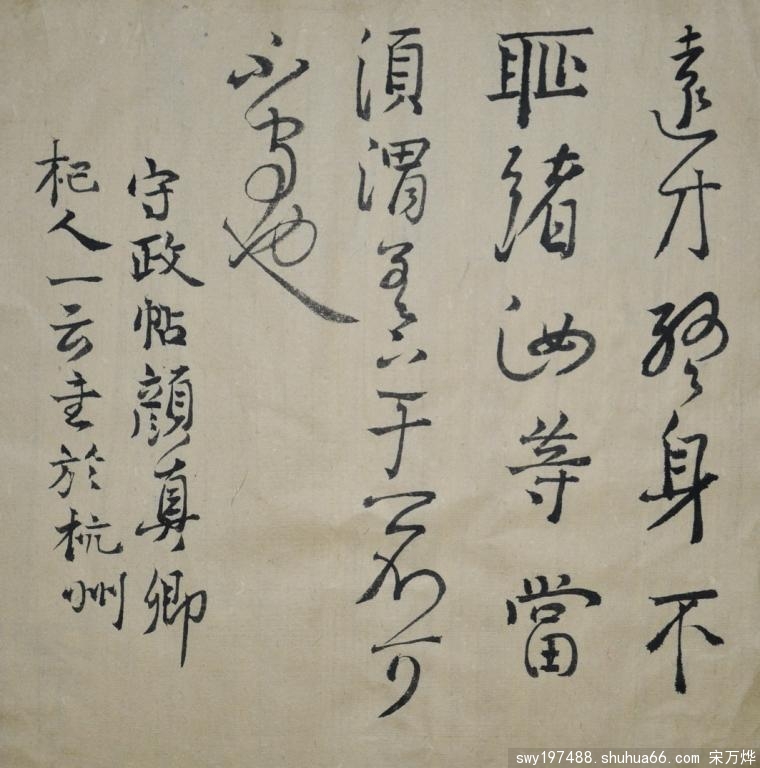 遠方終身不
耻緒汝等當
須謂吾之志不可
不守也
守政帖顏真卿
杞人一云書於杭州
swy197488.shuhua66.com 宋万烨